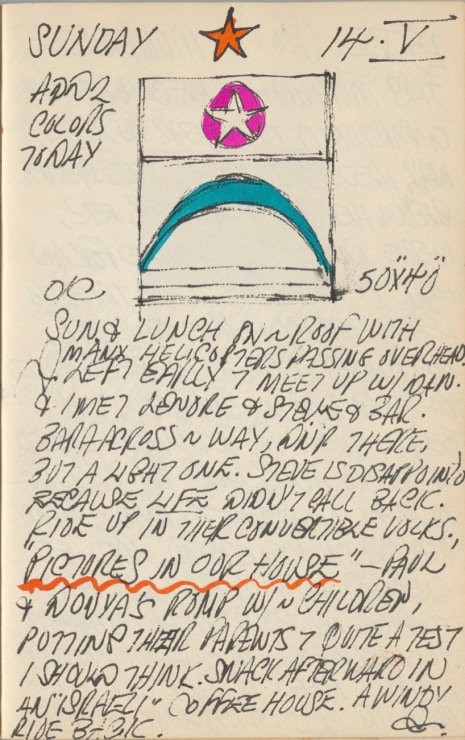 SUNDAY 14. V
ADD 2
COLORS
TODAY
OC 50"X40"
SUN & LUNCH ON ~ ROOF WITH
MANY HELICOPTERS PASSING OVERHEAD.
LEFT EARLY T MEET UP W/
& I MET LENORE & STEVE & BAR.
BAR ACROSS ~ WAY, DNR THERE,
BUT A LIGHT ONE. STEVE IS DISAPPOINTD
BECAUSE LIFE DIDN'T CALL BACK.
RIDE UP IN THER CONVERTIBLE VOLKS.,
"PICTURES IN OUR HOUSE" – PAUL
& NONYA'S ROMP W/ ~ CHILDREN,
PUTTING THEIR PARENTS T QUITE A TEST
I SHOULD THINK. SNACK AFTERWARD IN
AN "ISRAELI" COFFEE HOUSE. A WINDY
RIDE BACK.